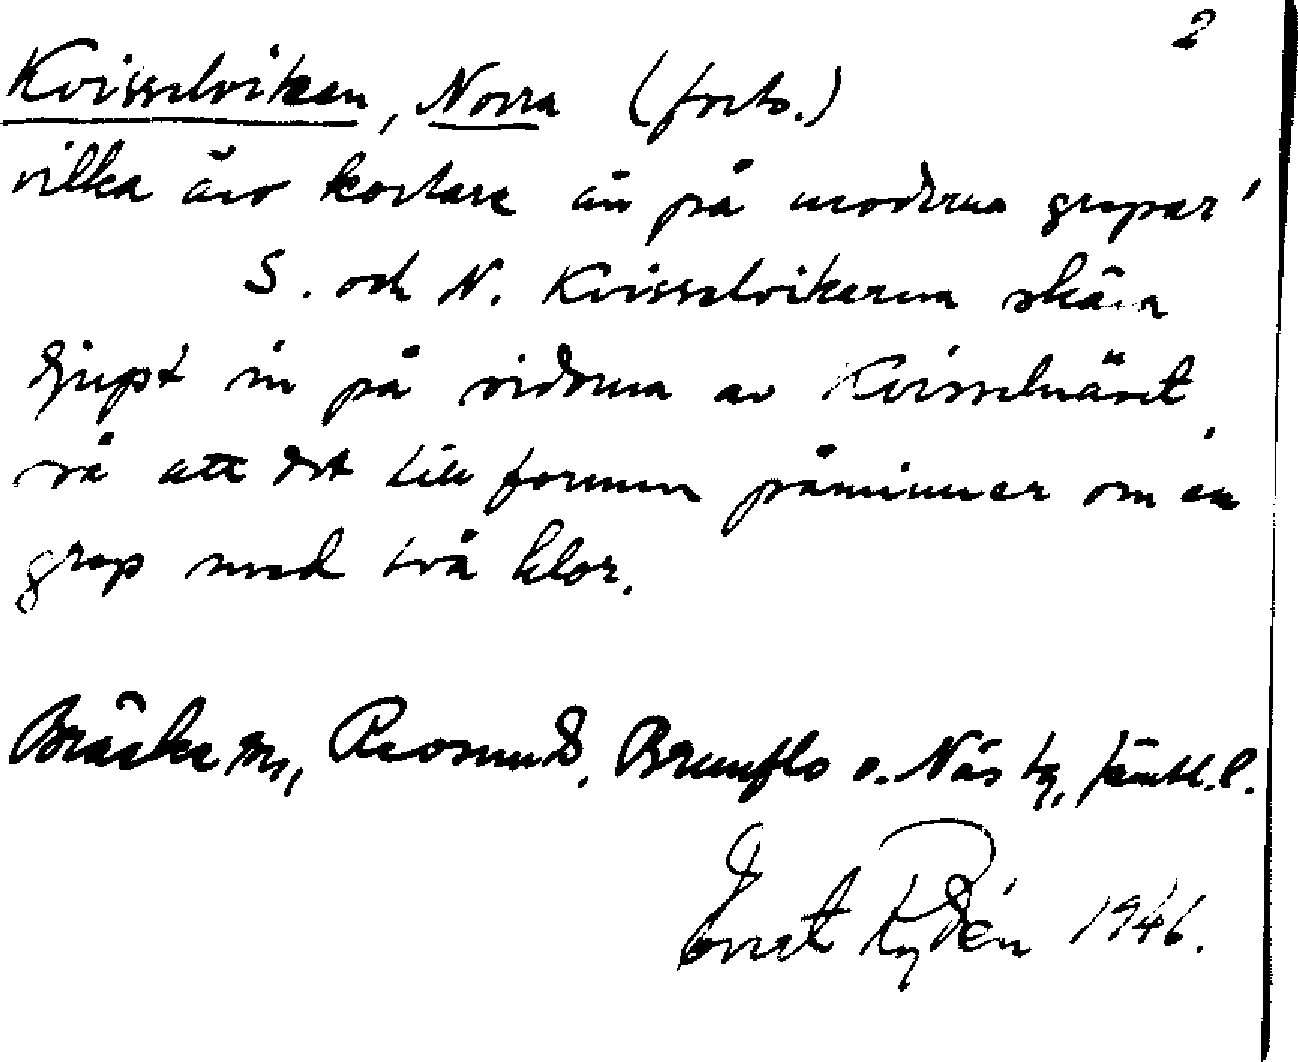 2
Kvisselviken, Norra (forts.)
vilka äro kortare än på moderna grepar'
S. och N. Kvisselvikerna skära
djupt in på sidorna av Kvisselnäset,
så att det till formen påminner om en
grep med två klor.
Bräcke sn, Revsunds, Brunflo o. Näs tg, Jämtl. l.
Ernst Rydén 1946.